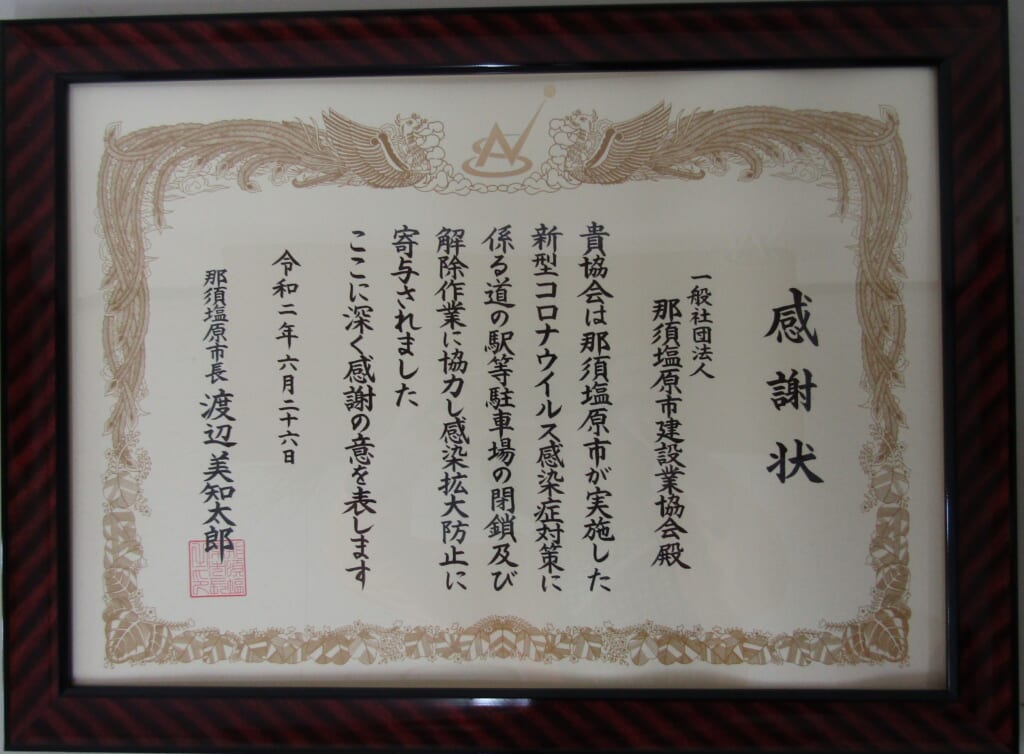 感謝状
一般社団法人
那須塩原市建設業協会殿
貴協会は那須塩原市が実施した
新型コロナウイルス感染症対策に
係る道の駅等駐車場の閉鎖及び
解除作業に協力し感染拡大防止に
寄与されました
ここに深く感謝の意を表します
令和二年六月二十六日
那須塩原市長 渡辺美知太郎